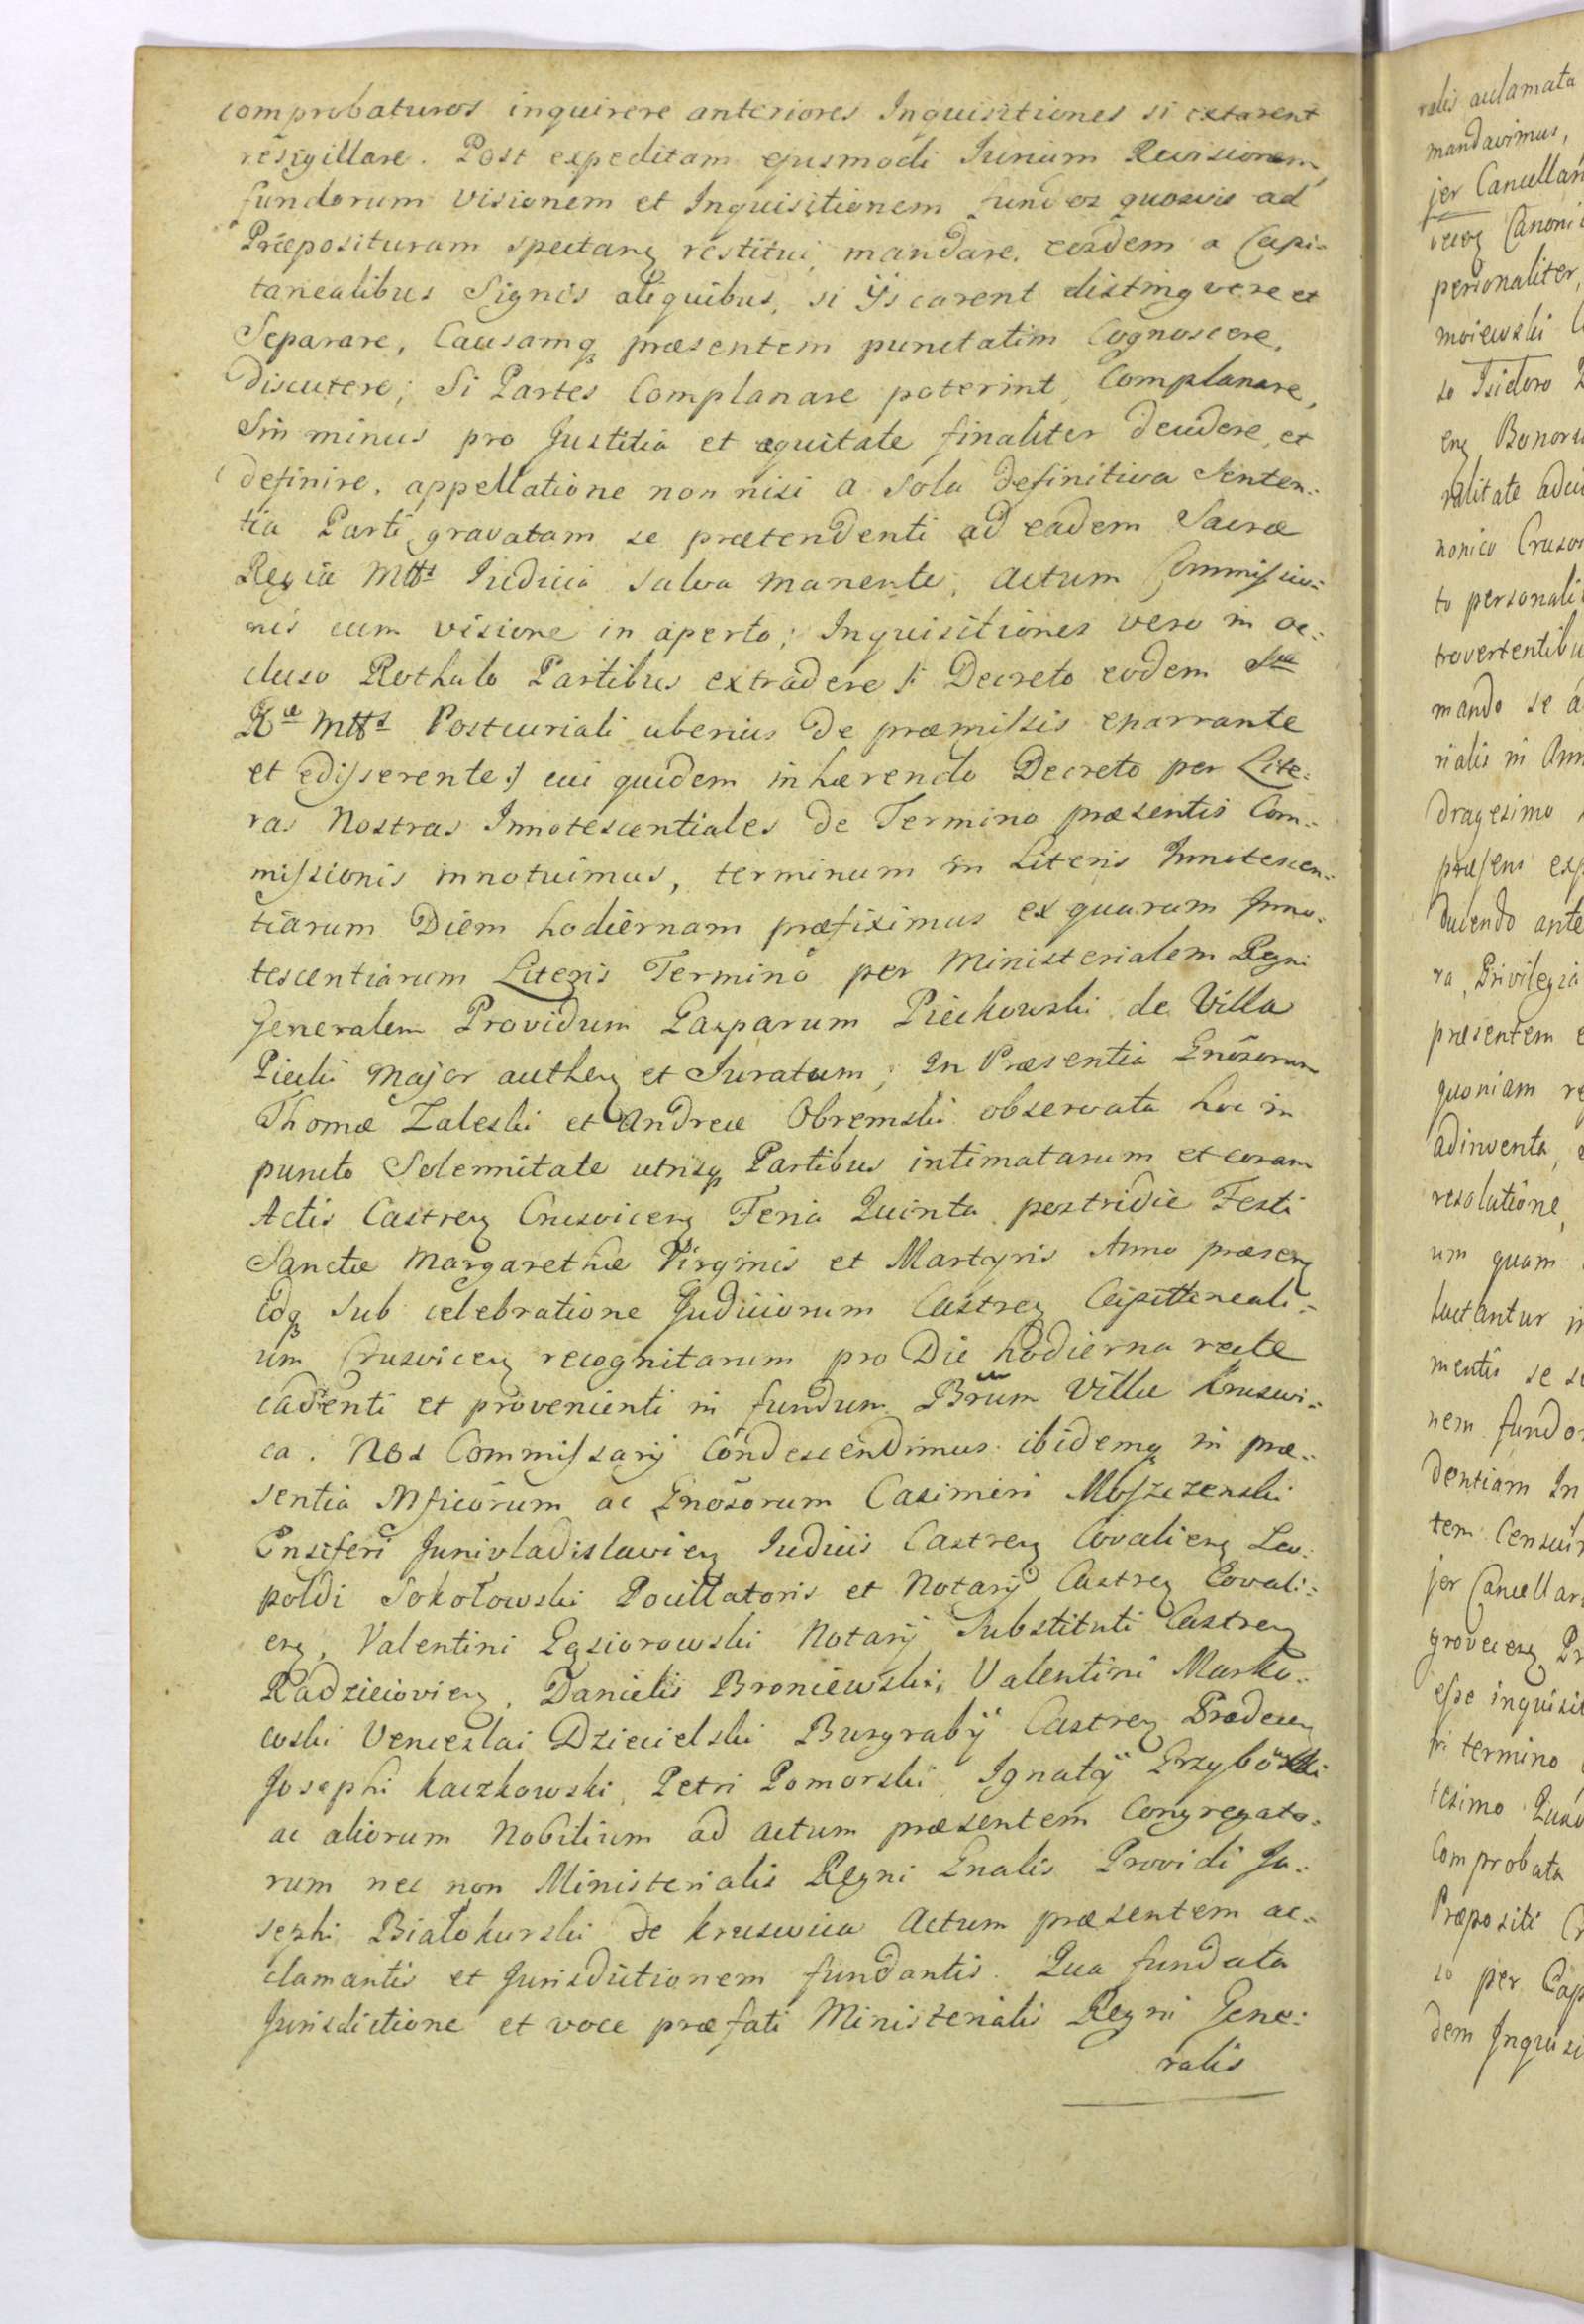 comprobaturos inquirere anteriores Inquisitiones si extarent
resigillare. Post expeditam ejusmodi Iurium Revisionem,
fundorum visionem et Inquisitionem fundos quosvis ad
Præposituram spectanz restitui mandare. eosdem a Capi=
tanealibus Signis aliquibus, si ijs carent distingvere et
Separare, Causamq præsentem punctatim Cognoscere,
discutere; Si Partes Complanare poterint, Complanare,
Sin minus pro Justitia et æquitate finaliter decidere, et
definire. appellatione non nisi a sola definitiva Senten=
tia Parti gravatam se prætendenti ad eadem Sacræ
Regiæ Mtts Iudicia salva manente; actum Commissio=
nis cum visione in aperto; Inquisitiones vero in oc=
cluso Rothulo Partibus extradere /: Decreto eodem Sæ
Ræ Mtts Postcuriali uberius de præmissis enarrante
et edisserente :/ cui quidem inhærendo Decreto per Lite=
ras Nostras Innotescentiales de Termino præsentis Com=
missionis innotuimus, terminum in Literis Innotescen=
tiarum Diem hodiernam præfiximus ex quarum Inno=
tescentiarum Literis Termino per Ministerialem Regni
Generalem Providum Gasparum Pieckowski de Villa
Piecki Major authenz et Iuratum; In Præsentia Gnosorum
Thomæ Zaleski et Andreæ Obremski observata hoc in
puncto Solennitate utrisq Partibus intimatarum et coram
Actis Castrenz Crusvicenz Feria Quinta postridie Festi
Sanctæ Margarethæ Virginis et Martyris Anno præsenz
Edq sub celebratione Judiciorum Castrenz Capittneali=
um Crusvicenz recognitarum pro Die hodierna recte
cadenti et provenienti in fundum Brum Villæ Kruswi=
ca. Nos Commissarij Condescendimus ibidemq in præ=
sentia Mficorum ac Gnosorum Casimiri Moszczenski
Ensiferi Junivladislavienz Iudicis Castrenz Covalienz Leo=
poldi Sokołowski Pocillatoris et Notarij Castrenz Covali=
enz, Valentini Gąsiorowski Notarij Substituti Castrenz
Radzieiovienz, Danielis Broniewski, Valentini Marko=
wski Venceslai Dziecielski Burgrabij Castrenz Bredecenz
Josephi Kaczkowski, Petri Pomorski Ignatij Grzybowski
ac aliorum Nobilium ad actum præsentem Congregato=
rum nec non Ministerialis Regni Gnalis Providi Jo=
sephi Białokurski de Kruswica Actum præsentem ac=
clamantis et Jurisdictionem fundantis. Qua fundata
Jurisdictione et voce præfati Ministerialis Regni Gene=
ralis
ralis aclamata
mandavimus,
personaliter,
moiewski
so Isidoro
enz Bonoru
to personali
trovertentibu
mando se a
rialis in Ann
dragesimo
præsens exp
ducendo ante
ra, Privilegia
præsentem
quoniam re
adinventa,
resolutione,
um quam
luctantur in
mentis se
nem fundo
dentiam In
tem Censui
jer Cancellar
esse inquisit
in termino
tesimo Quad
Comprobata
Præpositi Cr
so per Cap
dem Inquisi